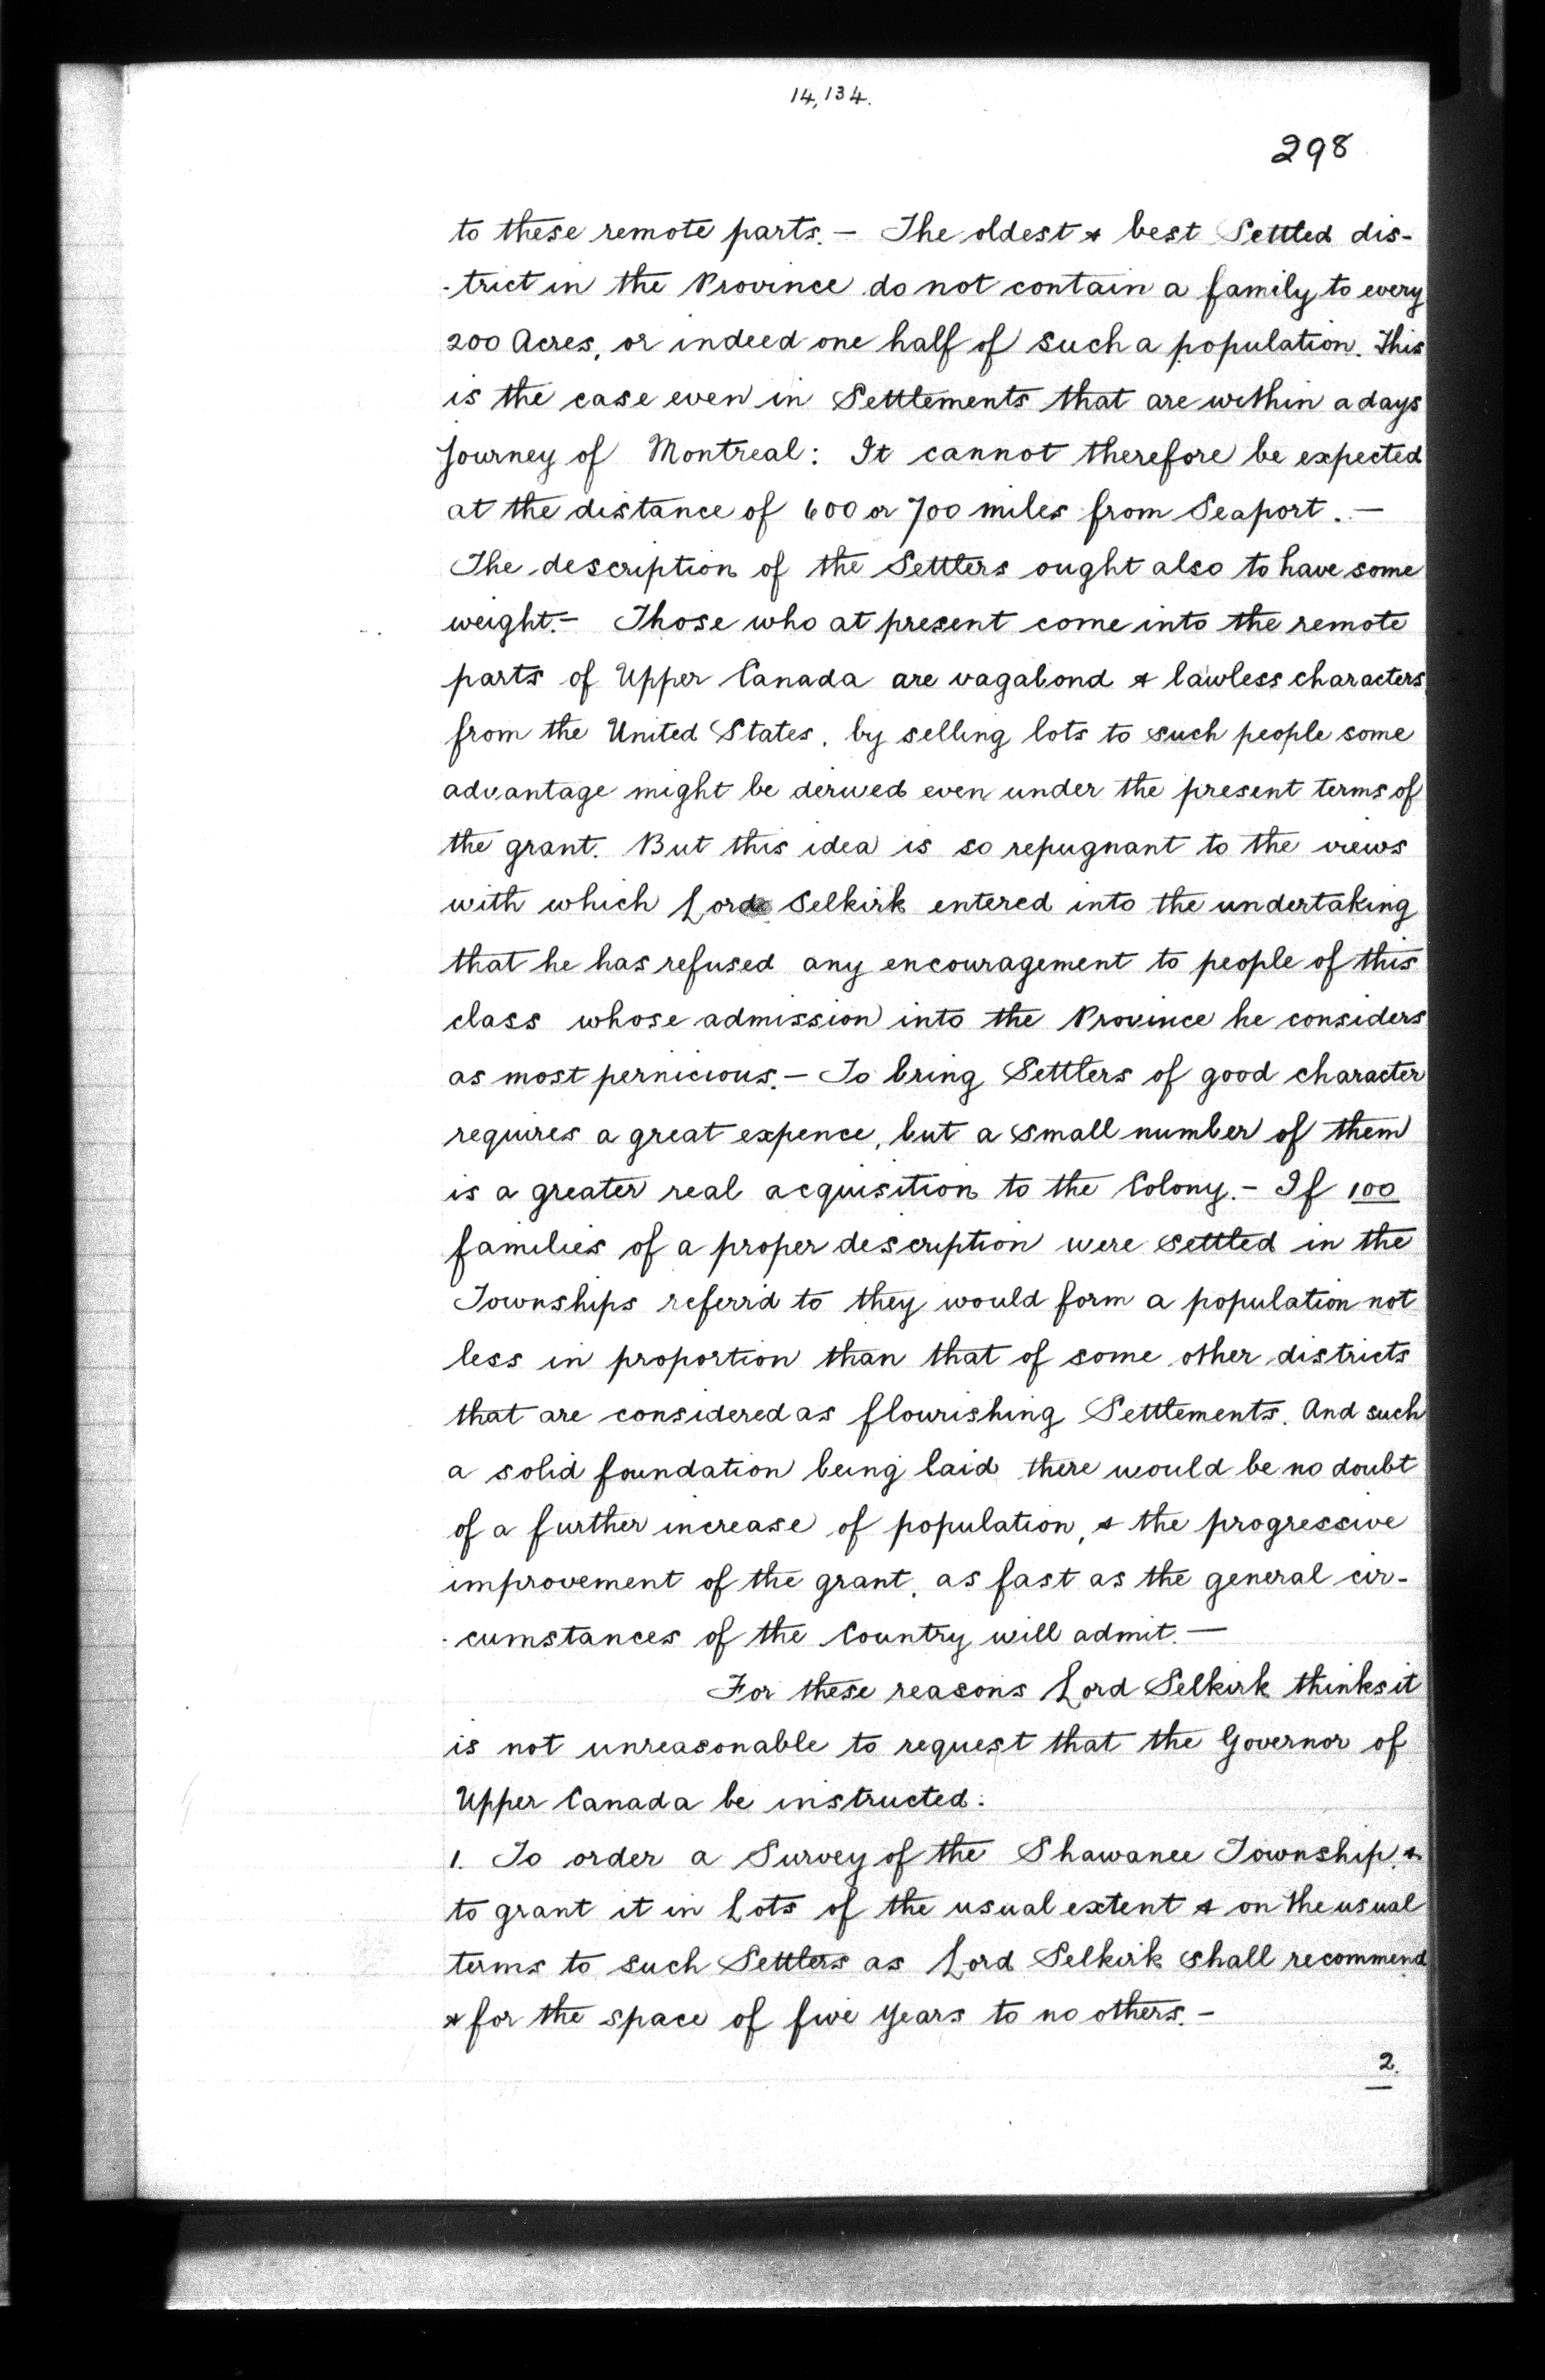 14,134.
298
to these remote parts. — The oldest & best Settled dis-
-trict in the Province do not contain a family to every
200 Acres, or indeed one half of such a population. This
is the case even in Settlements that are within a days
journey of Montreal: It cannot therefore be expected
at the distance of 600 or 700 miles from Seaport. —
The description of the Settlers ought also to have some
weight. — Those who at present come into the remote
parts of Upper Canada are vagabond & lawless characters
from the United States, by selling lots to such people some
advantage might be derived even under the present terms of
the grant. But this idea is so repugnant to the views
with which Lord Selkirk entered into the undertaking
that he has refused any encouragement to people of this
class whose admission into the Province he considers
as most pernicious. — To bring Settlers of good character
requires a great expence, but a small number of them
is a greater real acquisition to the Colony. — If 100
families of a proper description were settled in the
Townships referr'd to they would form a population not
less in proportion than that of some other districts
that are considered as flourishing Settlements. And such
a solid foundation being laid there would be no doubt
of a further increase of population, & the progressive
improvement of the grant, as fast as the general cir-
-cumstances of the Country will admit. —
For these reasons Lord Selkirk thinks it
is not unreasonable to request that the Governor of
Upper Canada be instructed:
1. To order a Survey of the Shawanee Township, &
to grant it in Lots of the usual extent & on the usual
terms to such Settlers as Lord Selkirk shall recommend
& for the space of five years to no others. —
2.